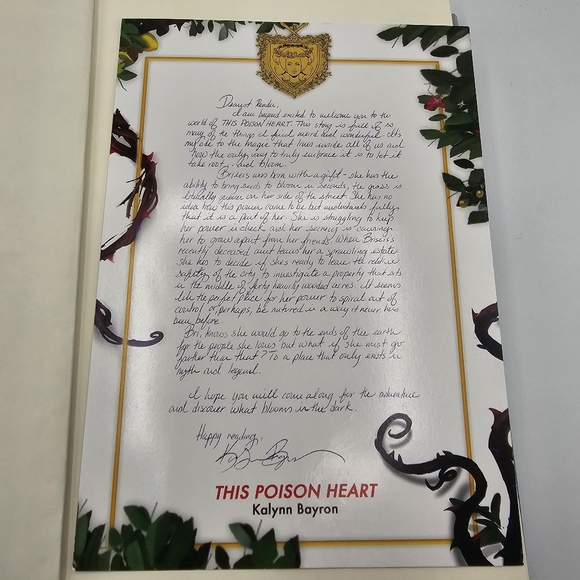 Dearest Reader,
I am beyond excited to welcome you to the
world of THIS POISON HEART. This story is full of so
many of the things I find weird and wonderful. It's
my ode to the magic that lives inside all of us and
how the only way to truly embrace it is to let it
take root. And bloom.
Briseis was born with a gift - she has the
ability to bring seeds to bloom in seconds, the grass is
literally greener on her side of the street. She has no
idea how this power came to be but understands fully
that it is a part of her. She is struggling to keep
her power in check and her secrecy is causing
her to grow apart from her friends. When Briseis's
recently deceased aunt leaves her a sprawling estate
she has to decide if she's ready to leave the relative
safety of the city to investigate a property that sits
in the middle of forty heavily wooded acres. It seems
like the perfect place for her power to spiral out of
control or perhaps, be nurtured in a way it never has
been before.
Bri knows she would go to the ends of the earth
for the people she loves but what if she must go
farther than that? To a place that only exists in
myth and legend.
I hope you will come along for the adventure
and discover what blooms in the dark.
Happy reading,
THIS POISON HEART
Kalynn Bayron